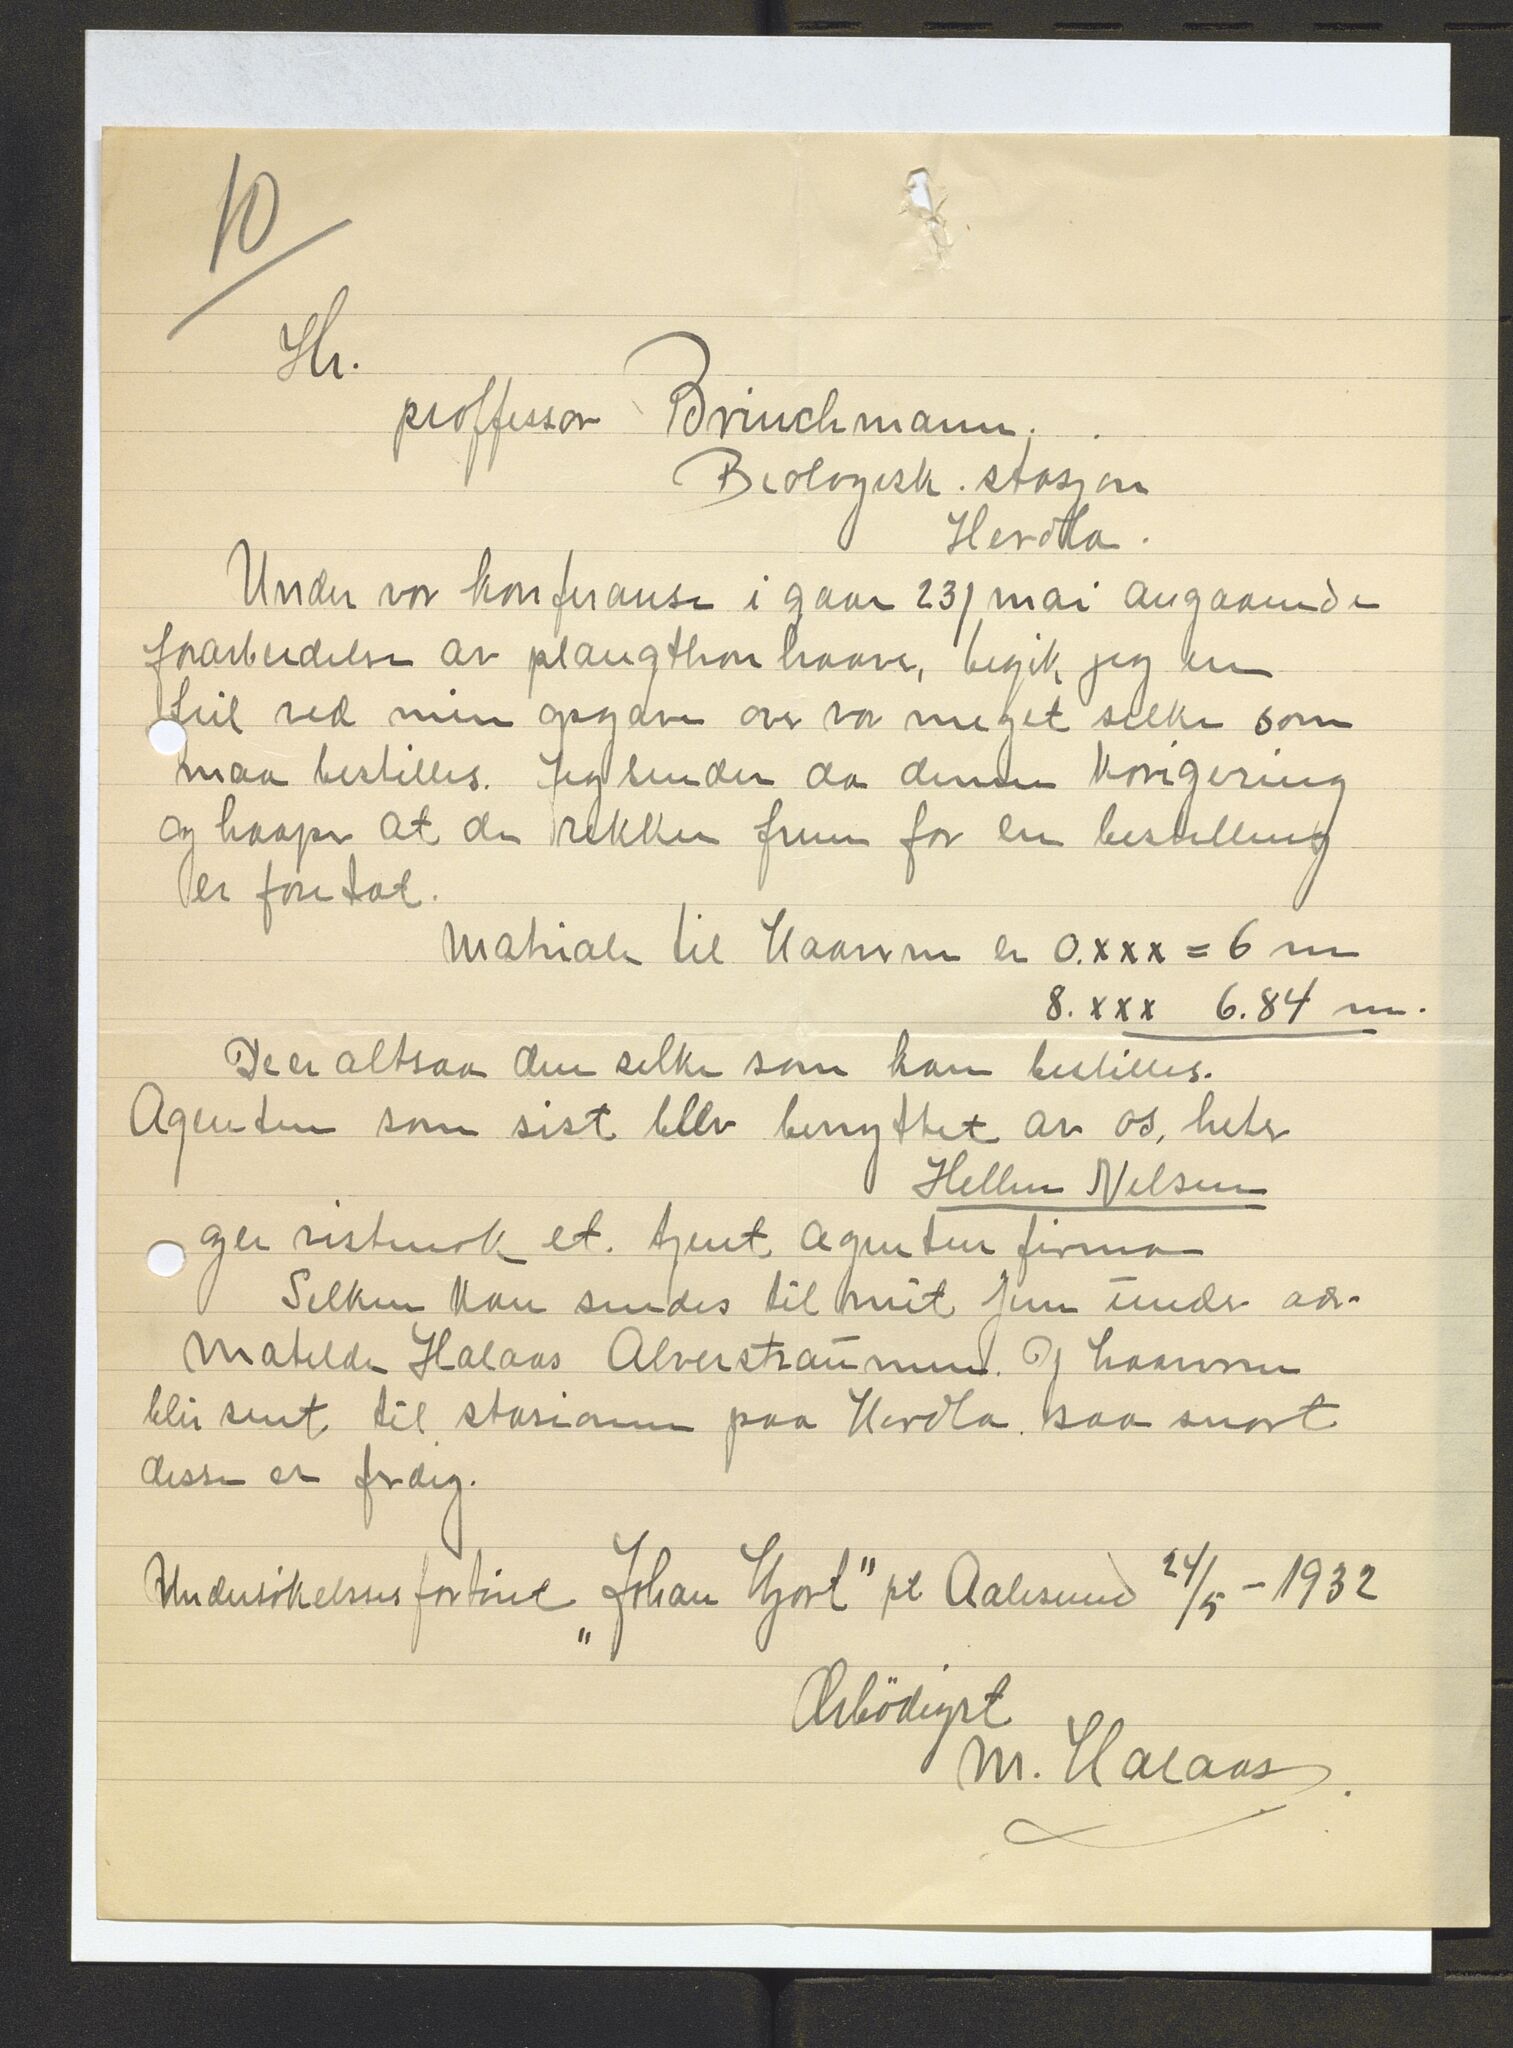 10
Hr.
proffessor Brinchmann.
Biologisk. stasjon
Herdla.
Under vor konferanse i gaar 23/ mai angaaende
forarbeidelse av plangthon haave, begik jeg en
feil ved min opgave over vor meget silke som
maa bestilles. Jeg sender da denne Korigering
og haaper at den rekker frem for en bestilling
er foretat.
Matriale til Haavene er 0.xxx = 6 m
8.xxx 6.84 m.
De er altsaa den silke som kan bestilles.
Agenten som sist blev benyttet av os, heter
Hellen Nilsen
og er vistnok et. kjent agentur firma
Silken kan sendes til mit hjem under adr.
Matilde Halaas Alverstraumen. Og haavene
blir sent til stasionen paa Herdla saa snart
disse er ferdig.
Undersøkelsesfartöiet „Johan Hjort" pt Aalesund 24/5 - 1932
Ærbödigst
M. Halaas.